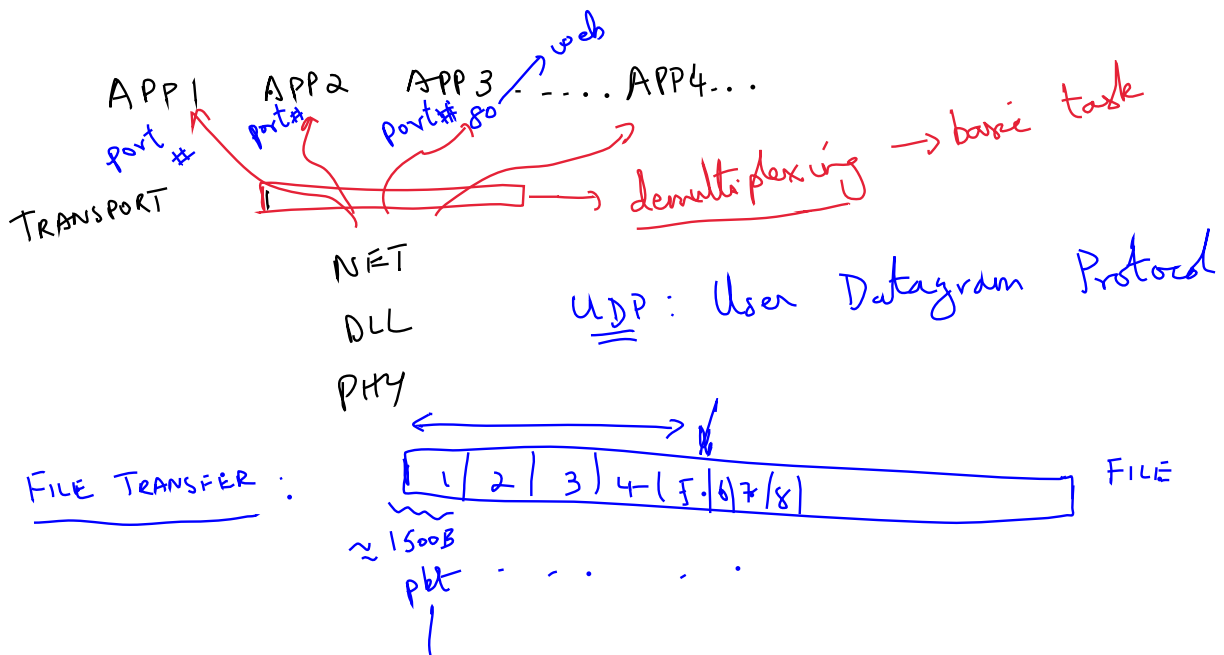 web
APP1 APP2 APP3 ...... APP4...
port # port# port# 80
TRANSPORT
demultiplexing → basic task
NET
UDP : User Datagram Protocol
DLL
PHY
FILE TRANSFER :
1 2 3 4 5 . 6 7 8
FILE
≈ 1500B
pkt . . . . .